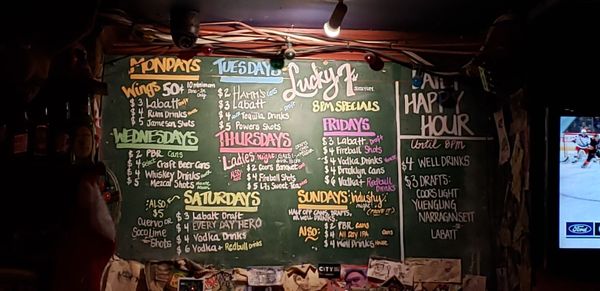 MONDAYS
Wings 50¢ 10 minimum
$3 Labatt Draft
$4 Rum Drinks
$5 Jameson Shots
TUESDAYS
$2 Hamm's Cans
$3 Labatt Draft
$4 Tequila Drinks
$5 Powers Shots
Lucky 7's
8PM SPECIALS
WEDNESDAYS
$2 PBR Cans
$4 Craft Beer Cans
$4 Whiskey Drinks
$5 Mezcal Shots
THURSDAYS
Ladies Night
$2 Coors Banquet
$4 Fireball Shots
$5 LI's Sweet Tea
FRIDAYS
$3 Labatt Draft
$4 Fireball Shots
$4 Vodka Drinks
$4 Brooklyn Cans
$6 Vodka + Redbull Drinks
ALSO
$5
CUERVO OR
SOCO LIME
SHOTS
SATURDAYS
$3 Labatt Draft
$4 EVERY DAY HERO
$4 Vodka Drinks
$6 Vodka + Redbull Drinks
SUNDAYS Industry
HALF OFF CANS, DRAFTS,
OR WELL DRINKS
ALSO
$2 PBR Cans
$4 All Day IPA
$4 Well Drinks
DAILY
HAPPY
HOUR
UNTIL 8PM
$4 WELL DRINKS
$3 DRAFTS:
COORS LIGHT
YUENGLING
NARRAGANSETT
LABATT
CITY
Ford